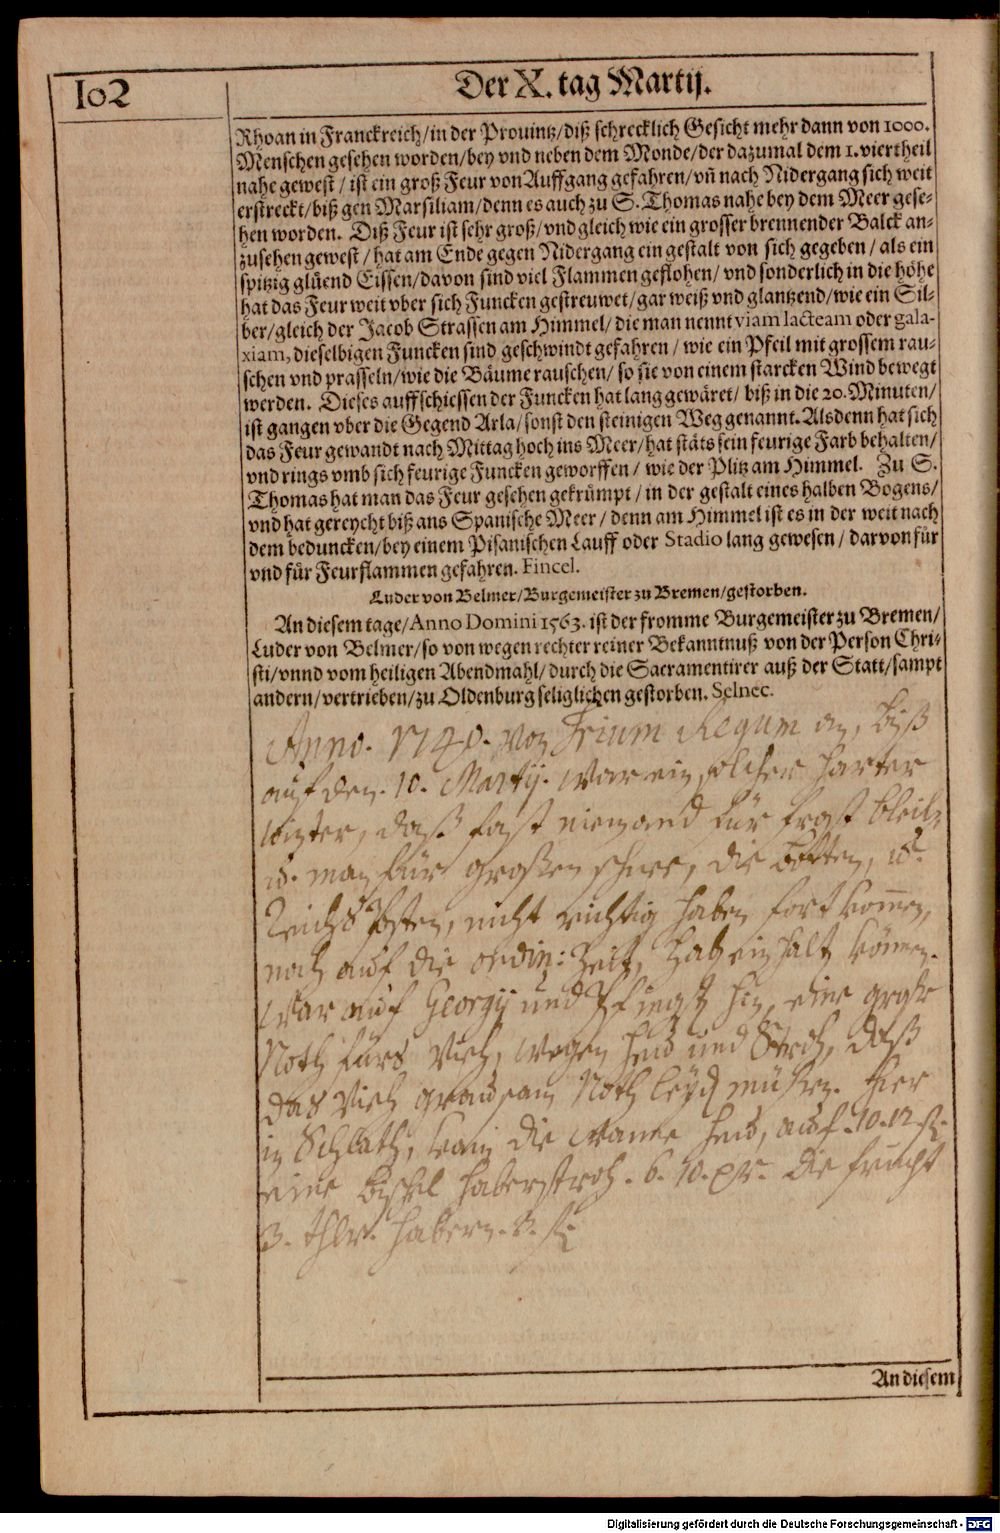 102
Der X. tag Martij.
Rhoan in Franckreich/in der Prouintz/diß schrecklich Gesicht mehr dann von 1000.
Menschen gesehen worden/bey vnd neben dem Monde/der dazumal dem 1. viertheil
nahe gewest / ist ein groß Feur von Auffgang gefahren/vñ nach Nidergang sich weit
erstreckt/biß gen Marsiliam/denn es auch zu S. Thomas nahe bey dem Meer gese-
hen worden. Diß Feur ist sehr groß/vnd gleich wie ein grosser brennender Balck an-
zusehen gewest / hat am Ende gegen Nidergang ein gestalt von sich gegeben / als ein
spitzig glüend Eissen/davon sind viel Flammen geflohen/ vnd sonderlich in die höhe
hat das Feur weit vber sich Funcken gestreuwet/gar weiß vnd glantzend/wie ein Sil-
ber/gleich der Jacob Strassen am Himmel/ die man nennt viam lacteam oder gala-
xiam, dieselbigen Funcken sind geschwindt gefahren / wie ein Pfeil mit grossem rau-
schen vnd prasseln/wie die Bäume rauschen/ so sie von einem starcken Wind bewegt
werden. Dieses auffschiessen der Funcken hat lang gewäret/ biß in die 20. Minuten/
ist gangen vber die Gegend Arla/sonst den steinigen Weg genannt. Alsdenn hat sich
das Feur gewandt nach Mittag hoch ins Meer/hat stäts sein feurige Farb behalten/
vnd rings vmb sich feurige Funcken geworffen / wie der Plitz am Himmel. Zu S.
Thomas hat man das Feur gesehen gekrümpt / in der gestalt eines halben Bogens/
vnd hat gereycht biß ans Spanische Meer / denn am Himmel ist es in der weit nach
dem beduncken/bey einem Pisanischen Lauff oder Stadio lang gewesen / darvon für
vnd für Feurflammen gefahren. Fincel.
Luder von Belmer/Burgemeister zu Bremen/gestorben.
An diesem tage/Anno Domini 1563. ist der fromme Burgemeister zu Bremen/
Luder von Belmer/so von wegen rechter reiner Bekanntnuß von der Person Chri-
sti/vnnd vom heiligen Abendmahl/durch die Sacramentirer auß der Statt/sampt
andern/vertrieben/zu Oldenburg seliglichen gestorben. Selnec.
Anno. 1740. von Trium Regum an, biß
auf den. 10. Martij. war ein solcher harter
winter, daß fast niemand für frost bleib,
u. man für großen schnee, die botten, u.
Reichs Posten, nicht richtig haben fort kom̄en,
noch auf die ordin: Zeit, hat einhalt können.
war auf Georgij und Pfingst hin, eine große
Noth fürs Vieh, wegen heu und Stroh, daß
das Vieh grausam Noth leyd müßen. hier
in Schlath, kam die wanne heu, auf. 10. 12 fl.
eine bischel haberstroh. 6. 10. xr. die frucht
3. thlr. habern. 8. fl.
An diesem
Digitalisierung gefördert durch die Deutsche Forschungsgemeinschaft - DFG